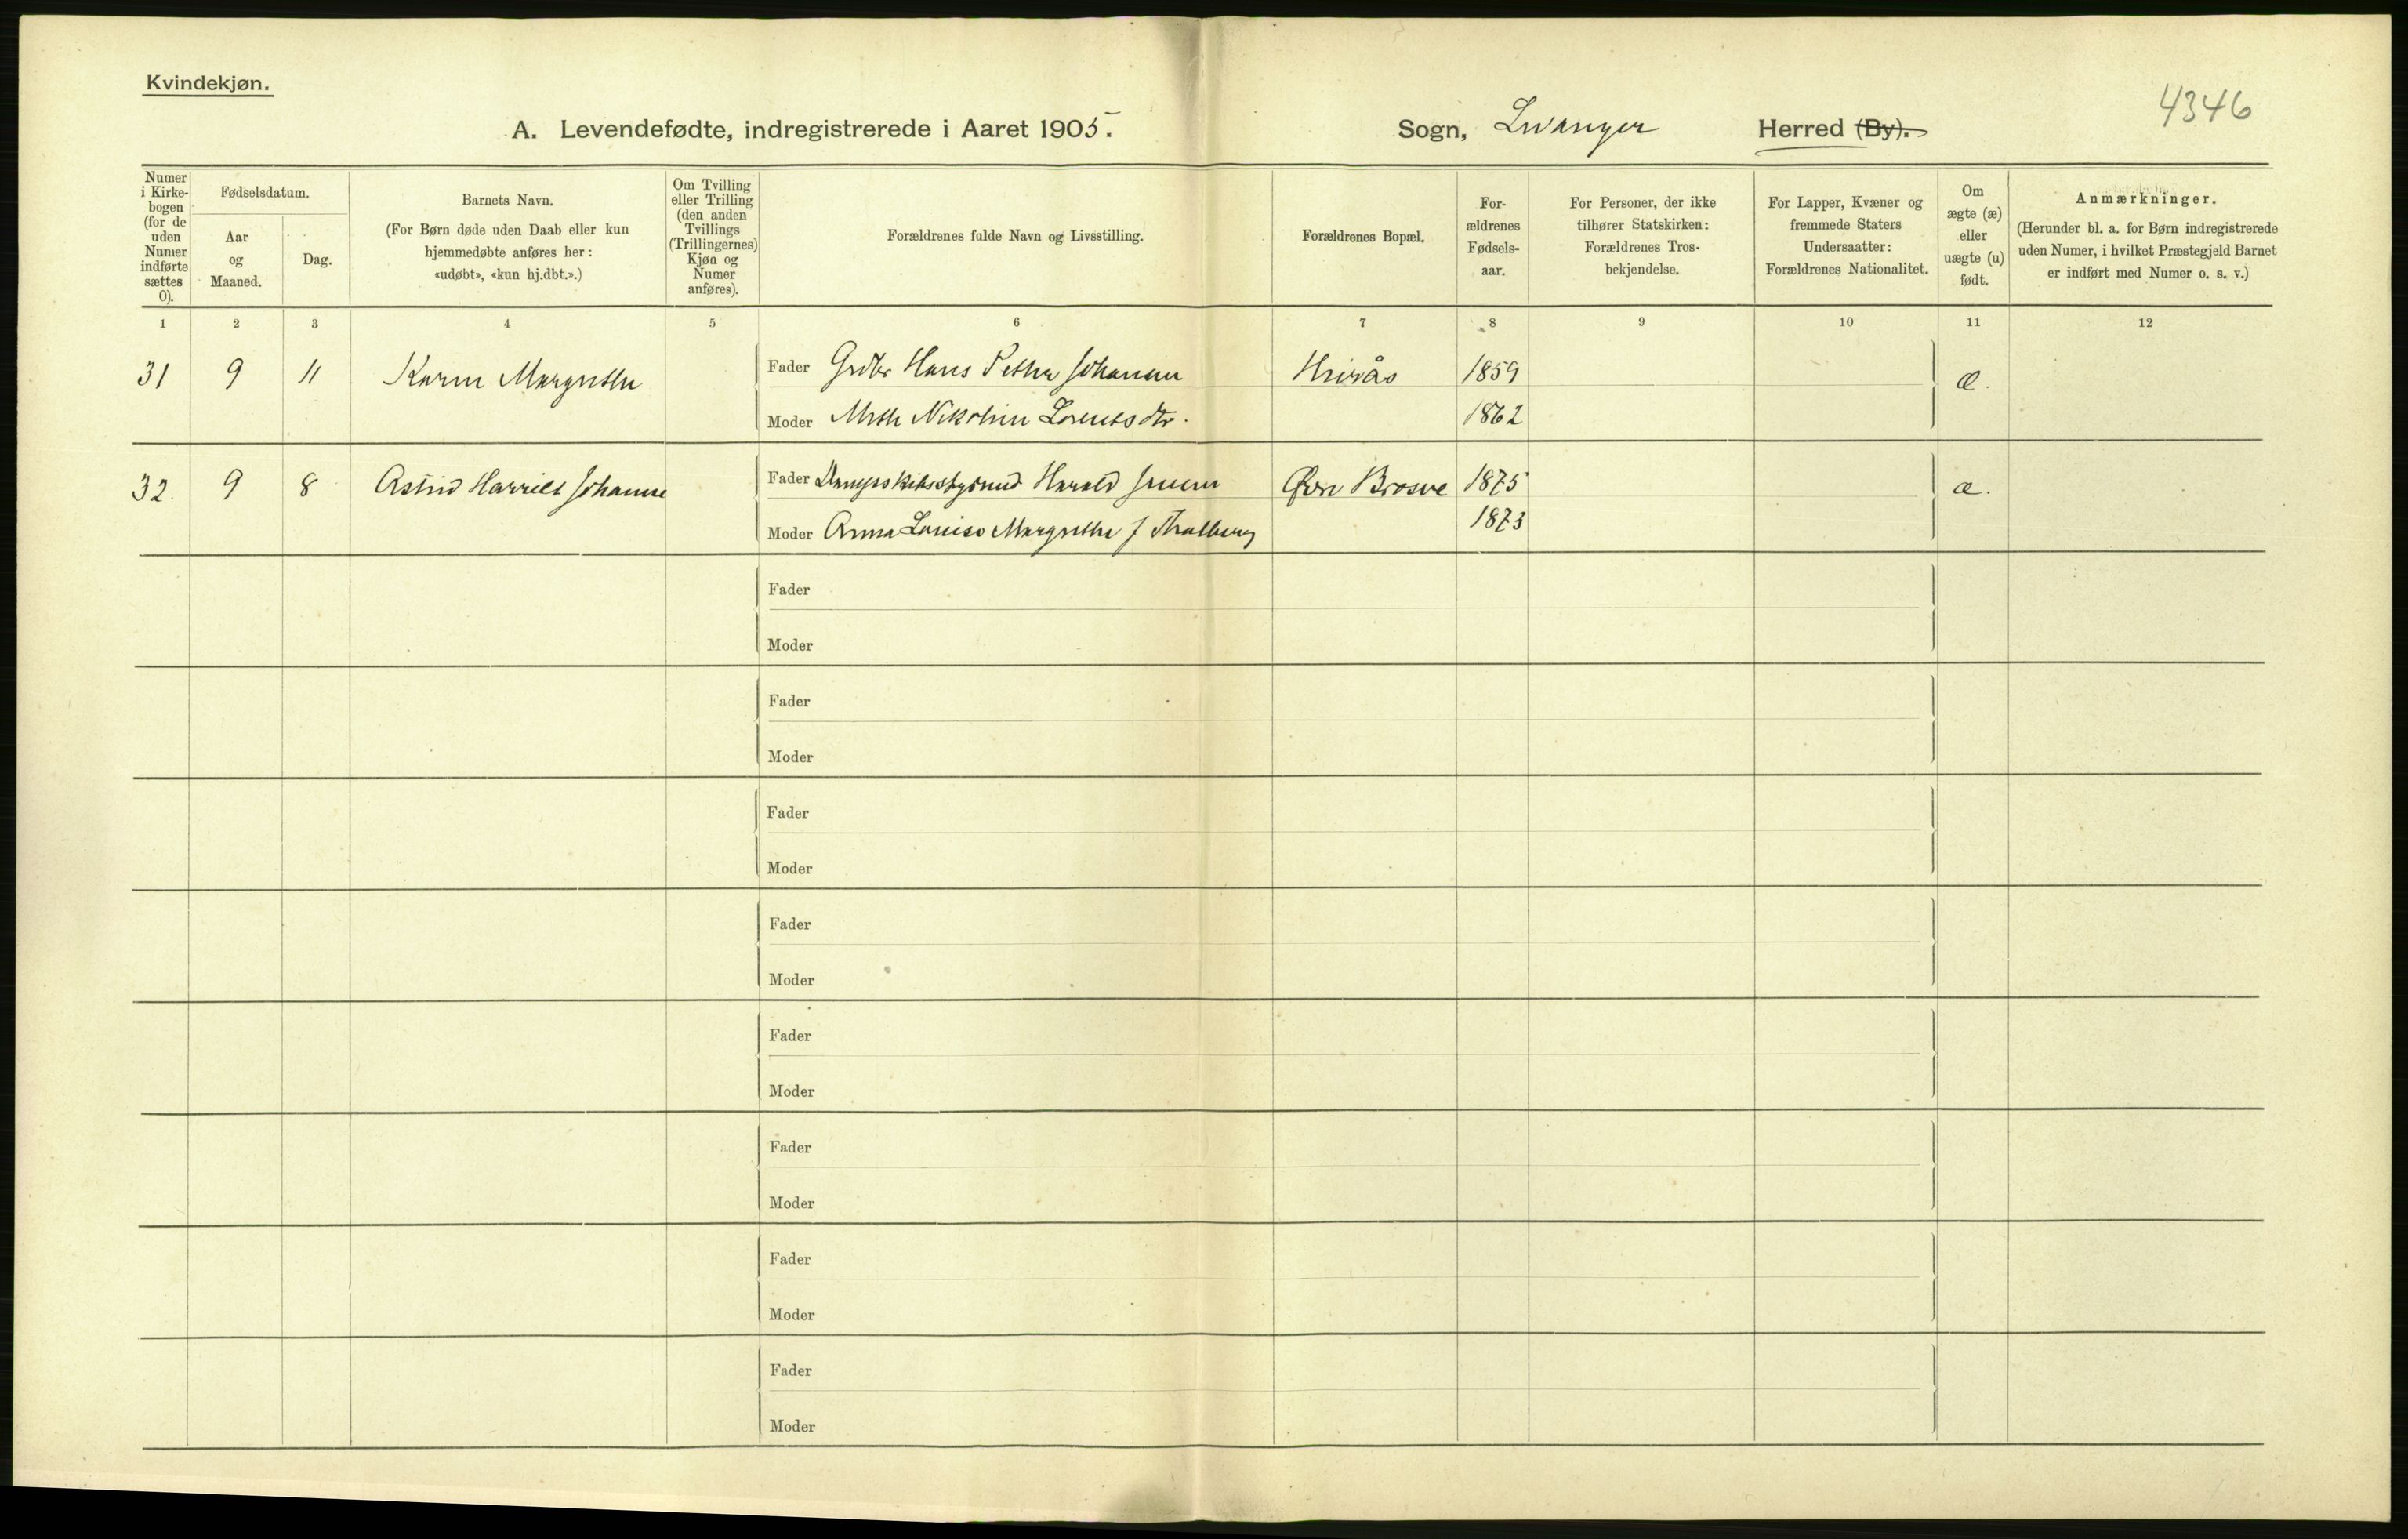 Kvindekjøn.
4346
A. Levendefødte, indregistrerede i Aaret 1905. Sogn, Levanger Herred (By).
Numer i Kirkebogen (for de uden Numer indførte sættes 0).
Fødselsdatum.
Aar og Maaned.
Dag.
Barnets Navn.
(For Børn døde uden Daab eller kun
hjemmedøbte anføres her:
«udøbt», «kun hj.dbt.».)
Om Tvilling
eller Trilling
(den anden
Tvillings
(Trillingernes)
Kjøn og
Numer
anføres).
Forældrenes fulde Navn og Livsstilling.
Forældrenes Bopæl.
For-
ældrenes
Fødsels-
aar.
For Personer, der ikke
tilhører Statskirken:
Forældrenes Tros-
bekjendelse.
For Lapper, Kvæner og
fremmede Staters
Undersaatter:
Forældrenes Nationalitet.
Om
ægte (æ)
eller
uægte (u)
født.
Anmærkninger.
(Herunder bl. a. for Børn indregistrerede
uden Numer, i hvilket Præstegjeld Barnet
er indført med Numer o. s. v.)
1 2 3 4 5 6 7 8 9 10 11 12
31 9 11 Karen Margrethe Fader Grdbr Hans Pether Johansen 1859 æ.
Moder Meth Nikoline Lorentsdtr. 1862
32. 9 8 Astrid Harriet Johanne Fader Dampskibsstyrmd Harald Jensen Øvre Brusve 1875 æ.
Moder Anna Louise Margrethe f Thalberg 1873
Fader
Moder
Fader
Moder
Fader
Moder
Fader
Moder
Fader
Moder
Fader
Moder
Fader
Moder
Fader
Moder